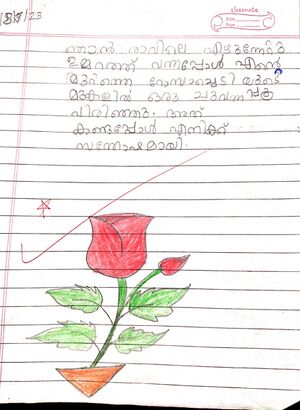 classmate
Date
Page
/23
ഞാൻ രാവിലെ എഴുന്നേറ്റ്
ഉമ്മറത്ത് വന്നപ്പോൾ എന്റെ
മുറ്റത്തെ റോസാച്ചെടി യുടെ
മുകളിൽ ഒരു ചുവന്ന പൂ
വിരിഞ്ഞു. അത്
കണ്ടപ്പോൾ എനിക്ക്
സന്തോഷമായി.